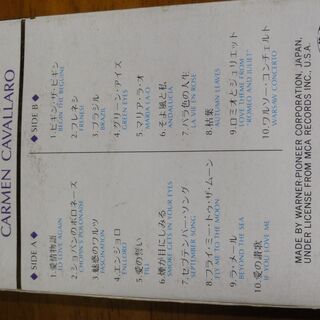 CARMEN CAVALLARO
◆ SIDE A ◆
1. 愛情物語
TO LOVE AGAIN
2. ショパンのポロネーズ
CHOPIN'S POLONAISE
3. 魅惑のワルツ
FASCINATION
4. エンジョロ
ENLLORO
5. 愛の誓い
TILL
6. 煙が目にしみる
SMOKE GETS IN YOUR EYES
7. セプテンバー・ソング
SEPTEMBER SONG
8. フライ・ミー・トゥ・ザ・ムーン
FLY ME TO THE MOON
9. ラ・メール
BEYOND THE SEA
10. 愛の讃歌
IF YOU LOVE ME
◆ SIDE B ◆
1. ビギン・ザ・ビギン
BEGIN THE BEGUINE
2. フレネシ
FRENESI
3. ブラジル
BRAZIL
4. グリーン・アイズ
GREEN EYES
5. マリア・ラ・オ
MARIA LA O
6. そよ風と私
ANDALUCIA
7. バラ色の人生
LA VIEN ROSE
8. 枯葉
AUTUMN LEAVES
9. ロミオとジュリエット
LOVE THEME FROM
"ROMEO AND JULIET"
10. ワルソー・コンチェルト
WARSAW CONCERTO
MADE BY WARNER-PIONEER CORPORATION, JAPAN,
UNDER LICENSE FROM MCA RECORDS INC., U.S.A.